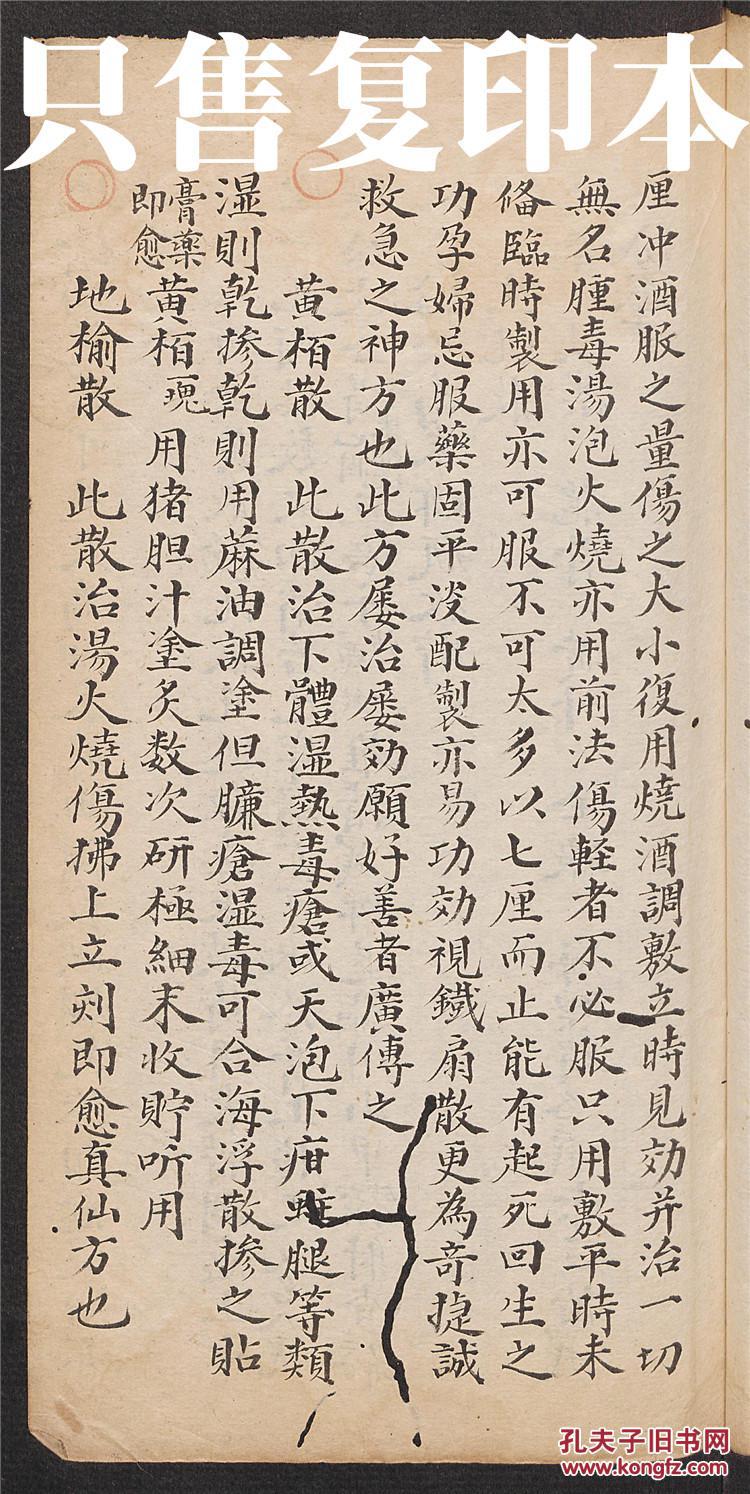 只售复印本
厘冲酒服之量傷之大小復用燒酒調敷立時見効并治一切
無名腫毒湯泡火燒亦用前法傷輕者不必服只用敷平時未
俻臨時製用亦可服不可太多以七厘而止能有起死回生之
功孕婦忌服藥固平淡配製亦易功効視鐵扇散更為奇捷誠
救急之神方也此方屡治屡効願好善者廣傳之
黄栢散 此散治下體湿熱毒瘡或天泡下疳蛀腿等類
湿則乾摻乾則用蔴油調塗但臁瘡湿毒可合海浮散摻之貼
膏藥即愈黄栢 用猪胆汁塗炙数次研極細末收貯听用
地榆散 此散治湯火燒傷拂上立刻即愈真仙方也
孔夫子旧书网
www.kongfz.com